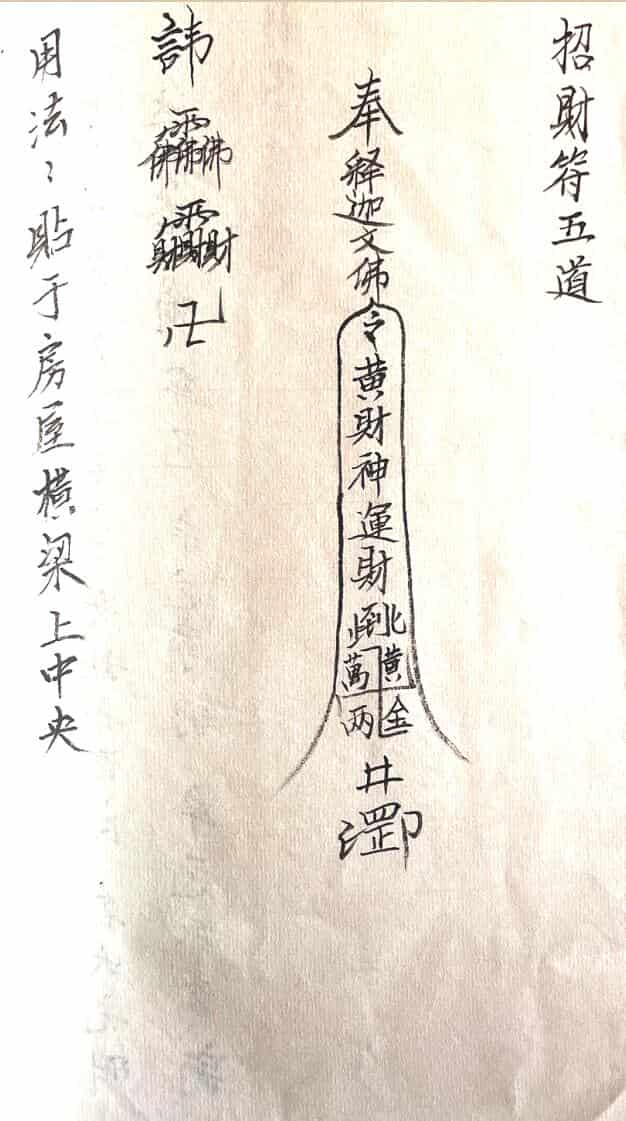 招財符五道
奉释迦文佛令黄財神運財到此
黄金萬两
井
諱
卍
用法：貼于房屋横梁上中央